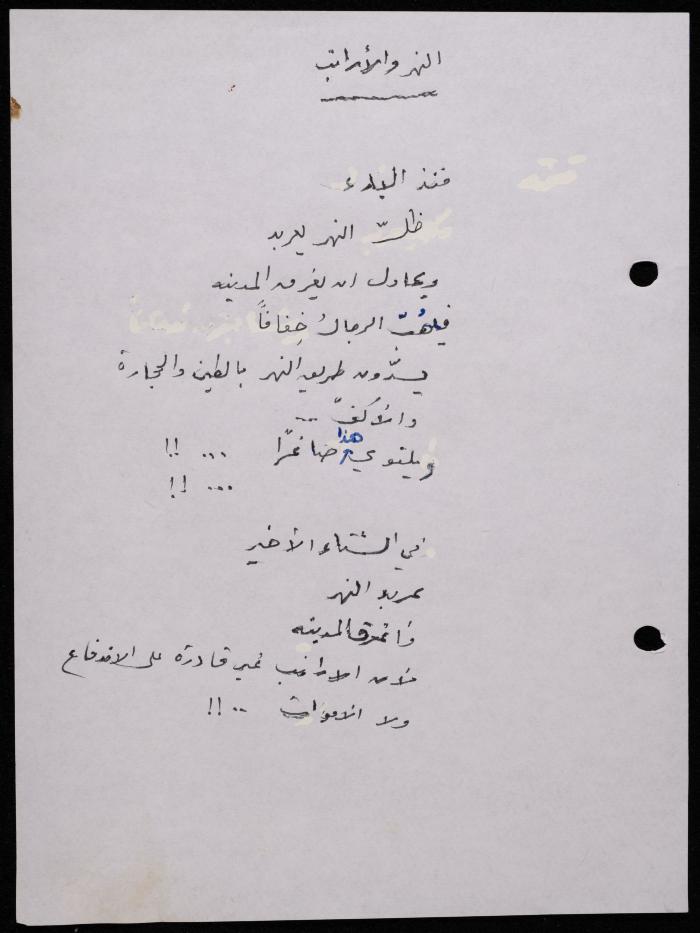 النهر والأرانب
منذ البدء
ظلّ النهر يعربد
ويحاول ان يغرق المدينه
فيهُبّ الرجالُ خِفافاً
يسدّون طريق النهر بالطين والحجارة
والأكفّ ..
ويلتوي هذا صاغرًا ... !!
... !!
في الشتاء الأخير
عربد النهر
فأغرق المدينه
فلأن الارانب غير قادرة على الاندفاع
ولا الاموات .. !!